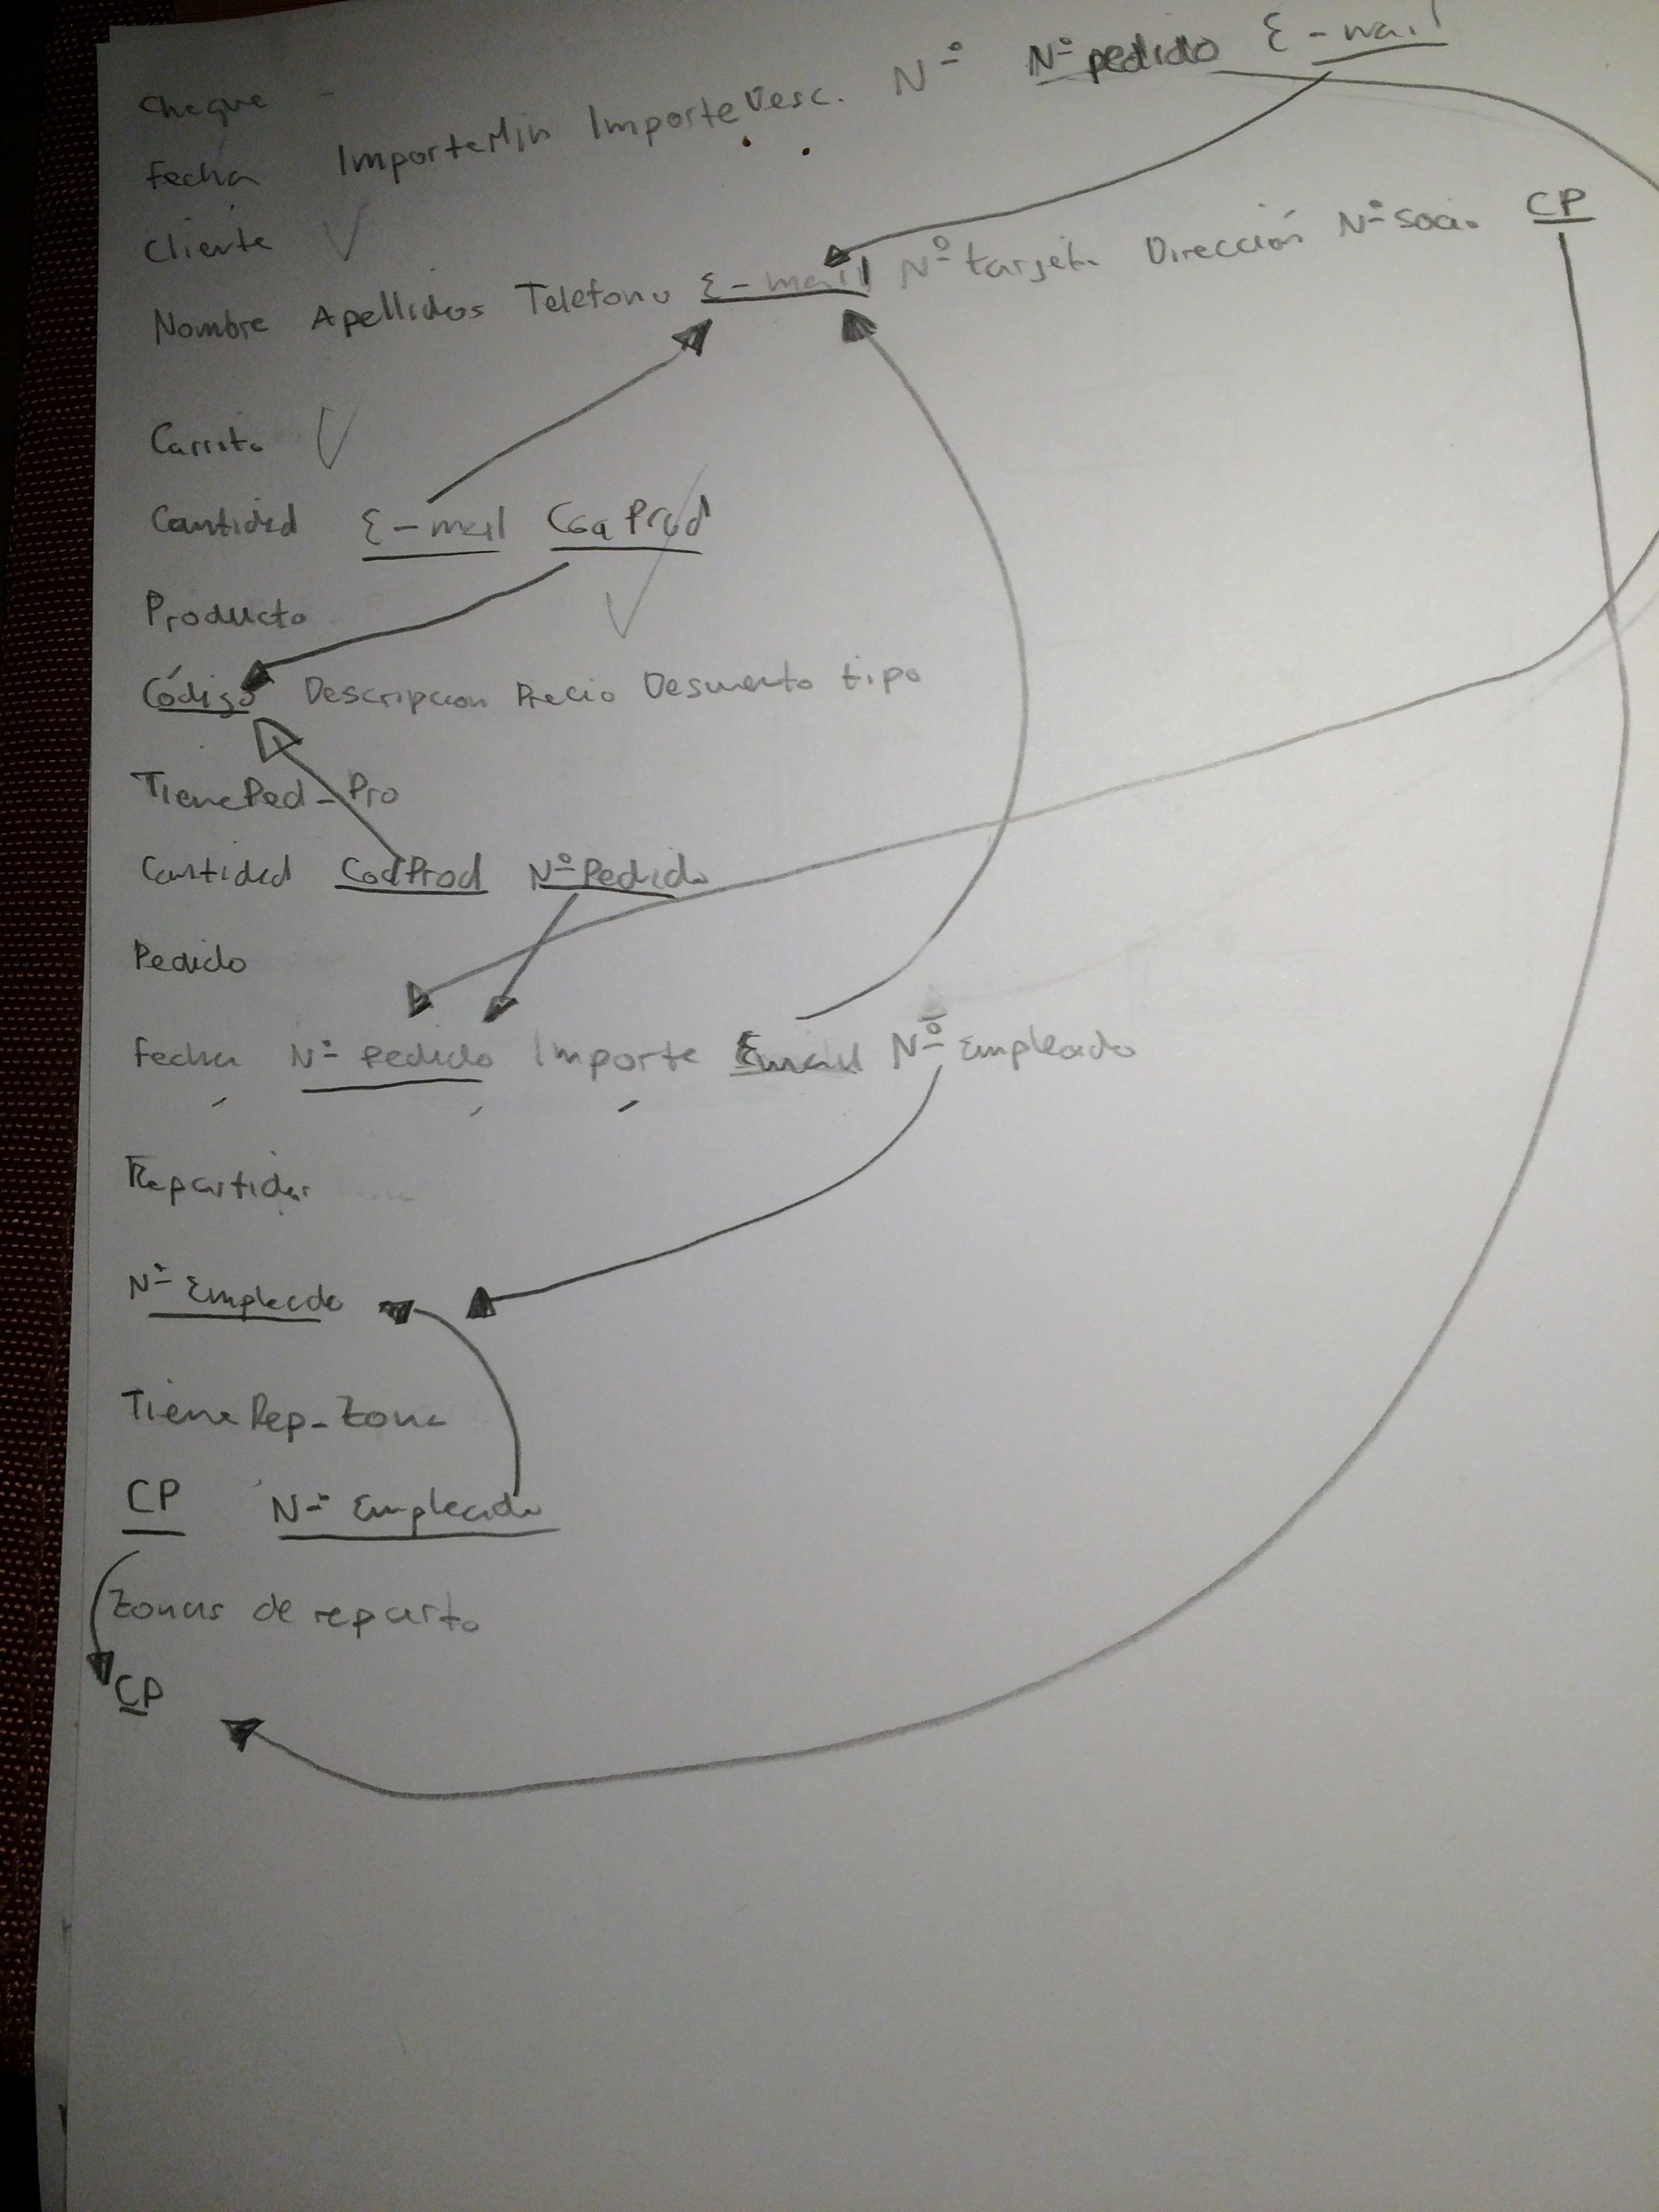 Cheque -
Fecha ImporteMin ImporteDesc. Nº Nº pedido E-mail
Cliente
Nombre Apellidos Telefono E-mail Nº tarjeta Dirección Nº socio CP
Carrito
Cantidad E-mail Cod Prod
Producto
Código Descripcion Precio Descuento tipo
TienePed-Pro
Cantidad CodProd Nº Pedido
Pedido
Fecha Nº Pedido Importe Email Nº Empleado
Repartidor
Nº Empleado
TieneRep-Zona
CP Nº Empleado
Zonas de reparto
CP